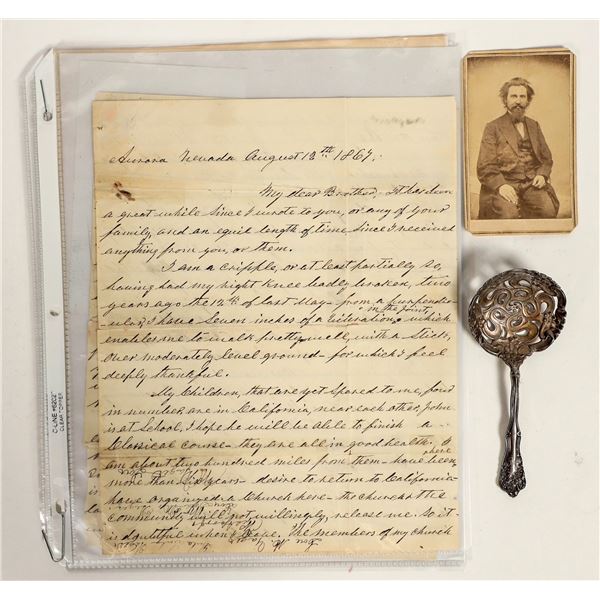 Aurora Nevada August 13th 1867.
My dear Brother, It has been
a great while since I wrote to you, or any of your
family, and an equal length of time since I received
anything from you, or them.
I am a cripple, or at least partially so,
having had my right Knee badly broken, two
years ago the 12th of last May - from a perpendic-
ular, I have seven inches of a vibration, in the joint, which
enables me to walk pretty well, with a stick,
over moderately level ground - for which I feel
deeply thankful.
My Children, that are yet spared to me, four
in number, are in California, near each other, John
is at School, I hope he will be able to finish a
Classical course - they are all in good health. I
am about two hundred miles from them - have been here
more than six years - desire to return to California -
have organized a Church here - the church & the
community will not willingly, release me. So it
is doubtful when I Move. The members of my Church
C-LINE #62027
CLEAR TOPPER